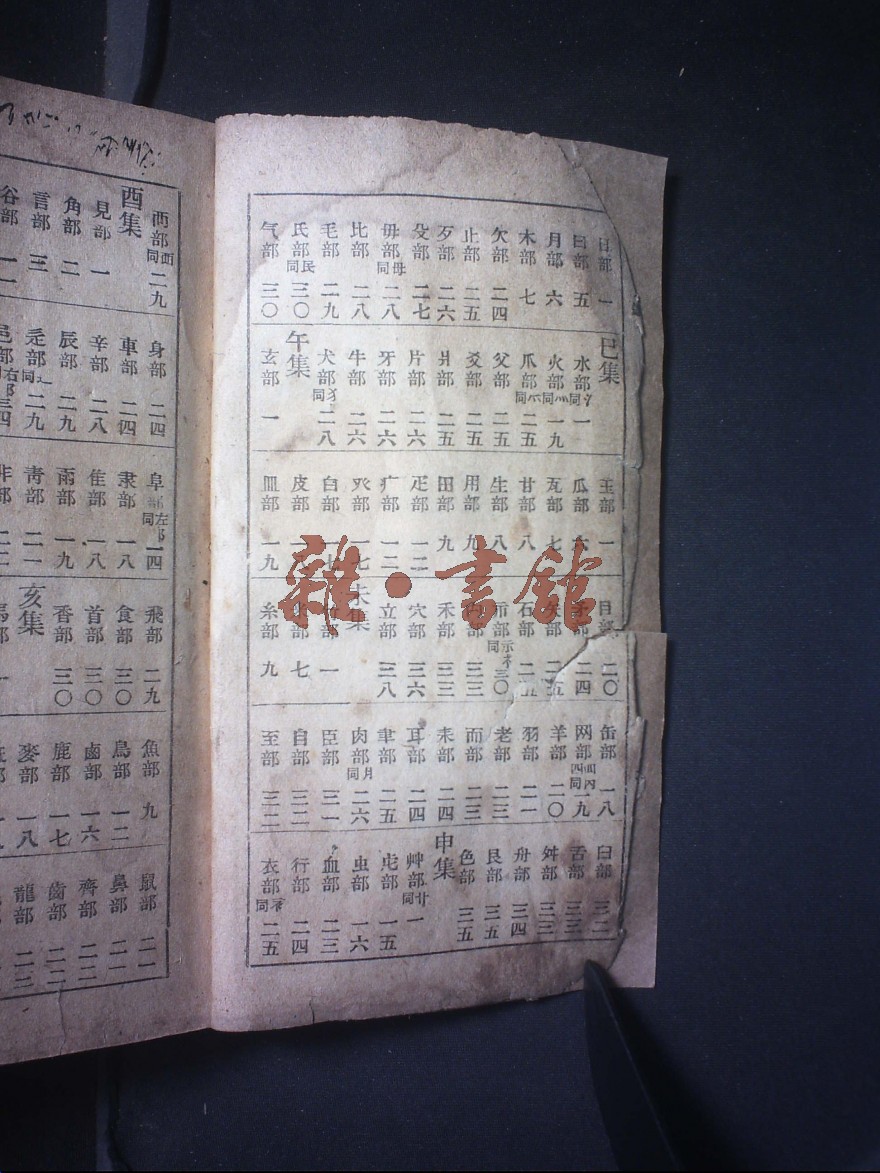 日部 一
曰部 五
月部 六
木部 七
欠部 二四
止部 二五
歹部 二六
殳部 二七
毋部 母同 二八
比部 二八
毛部 二九
氏部 民同 三〇
气部 三〇
巳集
水部 氵同 一
火部 灬同 一九
爪部 爫同 二五
父部 二五
爻部 二五
爿部 二五
片部 二六
牙部 二六
牛部 二六
犬部 犭同 二八
午集
玄部 一
玉部 一
瓜部
瓦部 七
甘部 八
生部 八
用部 九
田部 九
疋部 一二
疒部 一二
癶部 一七
白部 一七
皮部 一八
皿部 一九
目部 二〇
矛部 二四
矢部 二五
石部 二五
示部 三〇
禾部 三三
穴部 三六
立部 三八
未集
竹部 一
米部 七
糸部 九
缶部 一八
网部 一九
羊部 二〇
羽部 二一
老部 二三
而部 二三
耒部 二四
耳部 二四
聿部 二五
肉部 月同 二六
臣部 三一
自部 三二
至部 三二
臼部 三二
舌部 三三
舛部 三三
舟部 三四
艮部 三五
色部 三五
申集
艸部 卄同 一
虍部 一五
虫部 一六
血部 二三
行部 二四
衣部 衤同 二五
襾部 西同 二九
酉集
見部 一
角部 二
言部 三
谷部 一二
身部 二四
車部 二四
辛部 二八
辰部 二九
辵部 辶同 二九
邑部 三四
阜部 一四
隶部 一八
隹部 一八
雨部 一九
青部 二一
非部
飛部 二九
食部 三〇
首部 三〇
香部 三〇
亥集
馬部 一
魚部 九
鳥部 一二
鹵部 一六
鹿部 一七
麥部 一八
鼠部 二一
鼻部 二一
齊部 二二
齒部 二二
龍部 二三
雜·書館